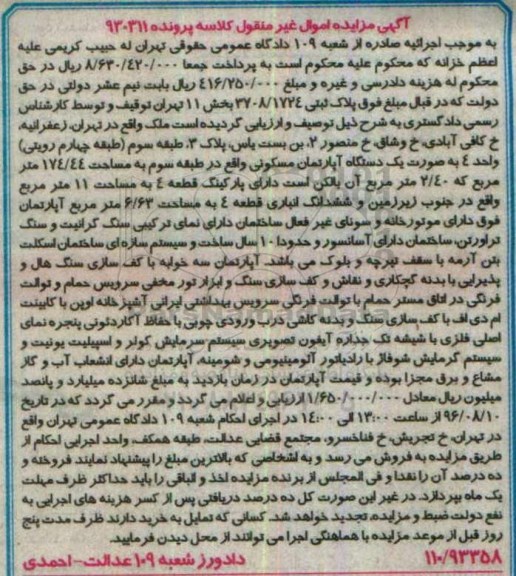 آگهی مزایده اموال غیر منقول کلاسه پرونده ۹۳۰۳۱۱
به موجب اجرائیه صادره از شعبه ۱۰۹ دادگاه عمومی حقوقی تهران له حبیب کریمی علیه
اعظم خزانه که محکوم علیه محکوم است به پرداخت جمعا ۸/۶۳۰/۴۲۰/۰۰۰ ریال در حق
محکوم له هزینه دادرسی و غیره و مبلغ ۴۱۶/۲۵۰/۰۰۰ ریال بابت نیم عشر دولتی در حق
دولت که در قبال مبلغ فوق پلاک ثبتی ۳۷۰۸/۱۷۲۴ بخش ۱۱ تهران توقیف و توسط کارشناس
رسمی دادگستری به شرح ذیل توصیف و ارزیابی گردیده است ملک واقع در تهران، زعفرانیه،
خ کافی آبادی، خ وشاق، خ منصور ۲، بن بست یاس، پلاک ۳، طبقه سوم (طبقه چهارم رویتی)
واحد ٤ به صورت یک دستگاه آپارتمان مسکونی واقع در طبقه سوم به مساحت ۱۷٤/٤٤ متر
مربع که ۲/٤۰ متر مربع آن بالکن است دارای پارکینگ قطعه ٤ به مساحت ۱۱ متر مربع
واقع در جنوب زیرزمین و ششدانگ انباری قطعه ٤ به مساحت ۶/۶۳ متر مربع آپارتمان
فوق دارای موتورخانه و سونای غیر فعال ساختمان دارای نمای ترکیبی سنگ گرانیت و سنگ
تراورتن، ساختمان دارای آسانسور و حدودا ۱۰ سال ساخت و سیستم سازه ای ساختمان اسکلت
بتن آرمه با سقف تیرچه و بلوک می باشد. آپارتمان سه خوابه با کف سازی سنگ هال و
پذیرایی با بدنه گچکاری و نقاش و کف سازی سنگ و ابزار تور مخفی سرویس حمام و توالت
فرنگی در اتاق مستر حمام با توالت فرنگی سرویس بهداشتی ایرانی آشپزخانه اوپن با کابینت
ام دی اف با کف سازی سنگ و بدنه کاشی درب ورودی چوبی با حفاظ آکاردئونی پنجره نمای
اصلی فلزی با شیشه تک جداره آیفون تصویری سیستم سرمایش کولر و اسپیلیت یونیت و
سیستم گرمایش شوفاژ با رادیاتور آلومینیومی و شومینه، آپارتمان دارای انشعاب آب و گاز
مشاع و برق مجزا بوده و قیمت آپارتمان در زمان بازدید به مبلغ شانزده میلیارد و پانصد
میلیون ریال معادل ۱/۶۵۰/۰۰۰/۰۰۰ ارزیابی و اعلام می گردد و مقرر می گردد که در تاریخ
۹۶/۰۸/۱۰ از ساعت ۱۳:۰۰ الی ۱۴:۰۰ در اجرای احکام شعبه ۱۰۹ دادگاه عمومی تهران واقع
در تهران، خ تجریش، خ فناخسرو، مجتمع قضایی عدالت، طبقه همکف، واحد اجرایی احکام از
طریق مزایده به فروش می رسد و به اشخاصی که بالاترین مبلغ را پیشنهاد نمایند فروخته و
ده درصد آن را نقدا و فی المجلس از برنده مزایده اخذ و الباقی را باید حداکثر ظرف مهلت
یک ماه بپردازد. در غیر این صورت کل ده درصد دریافتی پس از کسر هزینه های اجرایی به
نفع دولت ضبط و مزایده تجدید خواهد شد. کسانی که تمایل به خرید دارند ظرف مدت پنج
روز قبل از موعد مزایده با هماهنگی اجرا می توانند از محل دیدن فرمایید.
۱۱۰/۹۳۳۵۸ دادورز شعبه ۱۰۹ عدالت-احمدی